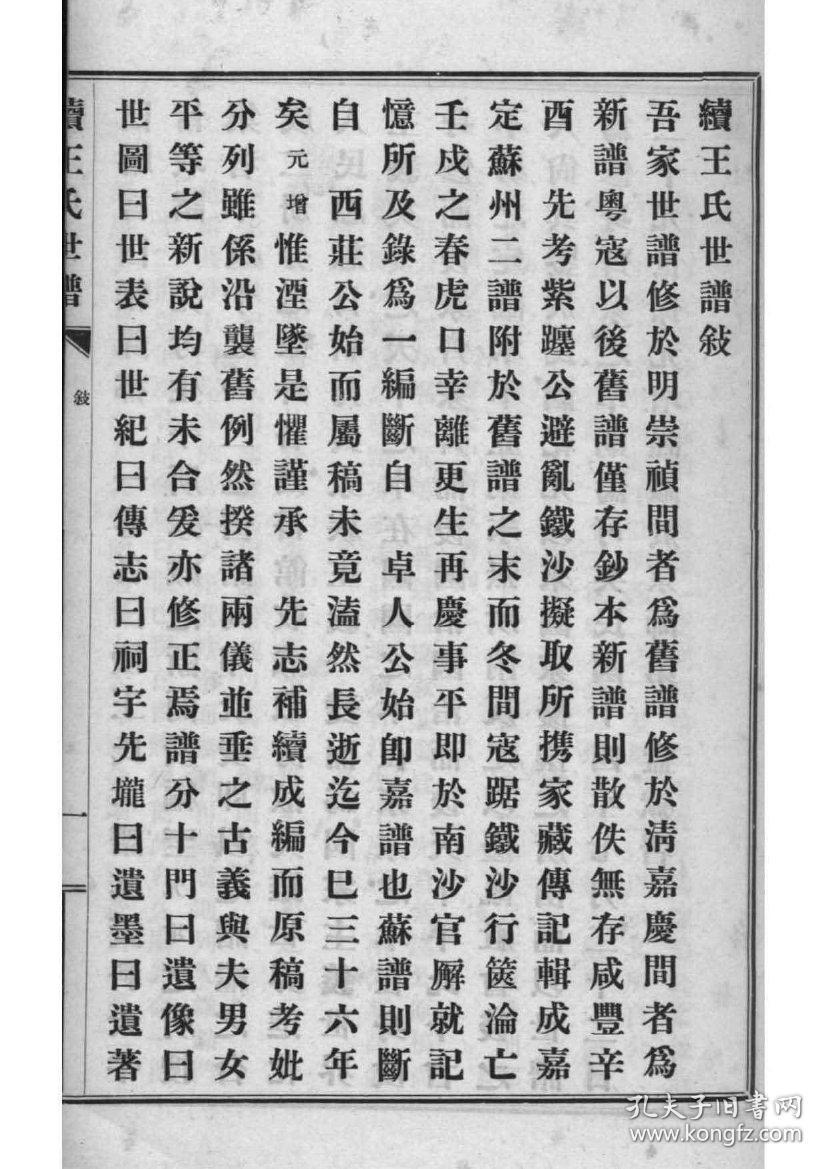 續王氏世譜敍
吾家世譜修於明崇禎間者為舊譜修於淸嘉慶間者為
新譜粵寇以後舊譜僅存鈔本新譜則散佚無存咸豐辛
酉 先考紫躔公避亂鐵沙擬取所携家藏傳記輯成嘉
定蘇州二譜附於舊譜之末而冬間寇踞鐵沙行篋淪亡
壬戍之春虎口幸離更生再慶事平即於南沙官廨就記
憶所及錄為一編斷自 卓人公始卽嘉譜也蘇譜則斷
自 西莊公始而屬稿未竟溘然長逝迄今巳三十六年
矣元增惟湮墜是懼謹承 先志補續成編而原稿考妣
分列雖係沿襲舊例然揆諸兩儀並垂之古義與夫男女
平等之新說均有未合爰亦修正焉譜分十門曰遺像曰
世圖曰世表曰世紀曰傳志曰祠宇先壠曰遺墨曰遺著
續王氏世譜
敍
一
孔夫子旧书网
www.kongfz.com